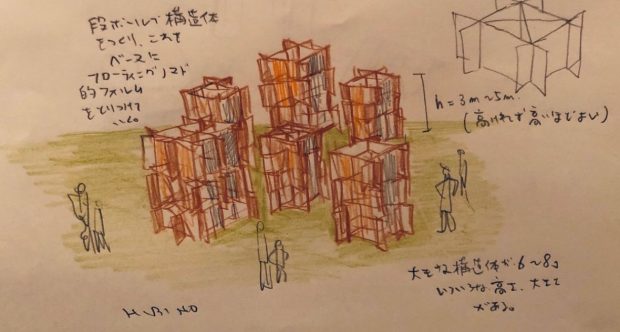 段ボールで構造体
をつくり、これを
ベースに
フローティングノマド
的フォルム
をとりつけて
いく。
h=3m〜5m.
(高ければ高いほどよい)
大きな構造体が6〜8コ
いろいろな高さ、大きさ
がある。
HIBINO